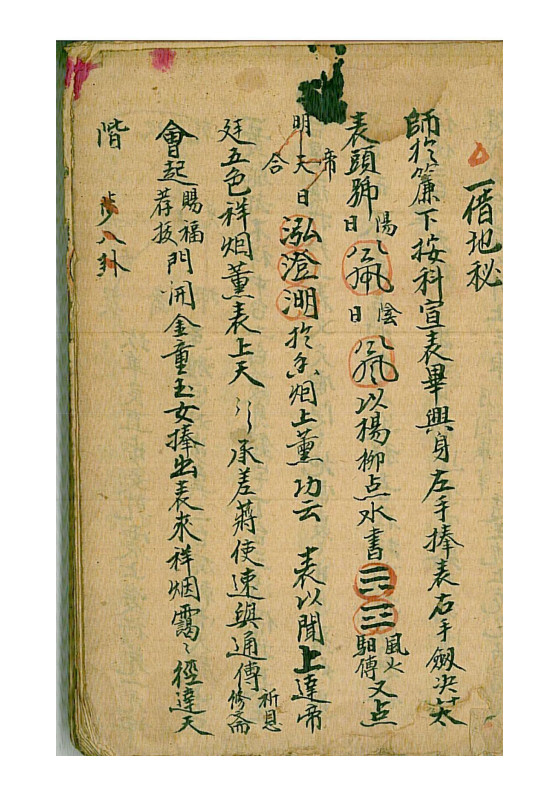 一借地秘
師於簾下按科宣表畢興身左手捧表右手劍决
表頭號陽日 陰日 以楊柳点水書三三風火駅傳又点
明天日帝合泓澄湖於香烟上薰功云 表以聞上達帝
廷五色祥烟薰表上天 承差蔣使速與通傳祈恩修齋
會起賜福荐扳門開金童玉女捧出表來祥烟靄〻徑達天
階 步八卦